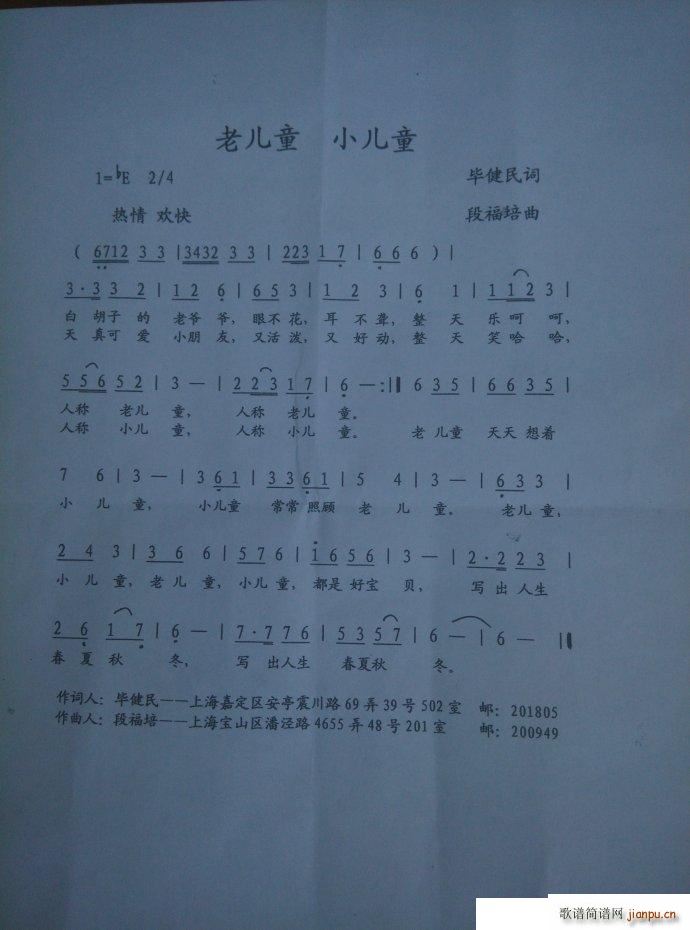 老儿童 小儿童
1=♭E 2/4 毕健民词
热情 欢快 段福培曲
( 6712 3 3 | 3432 3 3 | 223 1 7 | 6 6 6 ) |
3·3 3 2 | 1 2 6 | 6 5 3 | 1 2 3 | 6 1 | 1 1 2 3 |
白 胡子 的 老爷 爷，眼不 花，耳 不 聋，整 天 乐呵 呵，
天 真可 爱 小朋 友，又活 泼，又 好 动，整 天 笑哈 哈，
5 5 6 5 2 | 3 — | 2 2 3 1 7 | 6 — :|| 6 3 5 | 6 6 3 5 |
人称 老儿 童， 人称 老儿 童。
人称 小儿 童， 人称 小儿 童。 老 儿童 天天 想着
7 6 | 3 — | 3 6 1 | 3 3 6 1 | 5 4 | 3 — | 6 3 3 |
小 儿 童， 小儿童 常常 照顾 老 儿 童。 老儿 童，
2 4 3 | 3 6 6 | 5 7 6 | 1 6 5 6 | 3 — | 2·2 2 3 |
小 儿 童，老 儿 童，小儿 童，都是 好宝 贝， 写 出 人生
2 6 1 7 | 6 — | 7·7 7 6 | 5 3 5 7 | 6 — | 6 — ||
春 夏 秋 冬， 写 出人生 春夏秋 冬。
作词人：毕健民——上海嘉定区安亭震川路 69 弄 39 号 502 室 邮：201805
作曲人：段福培——上海宝山区潘泾路 4655 弄 48 号 201 室 邮：200949
歌谱简谱网 jianpu.cn